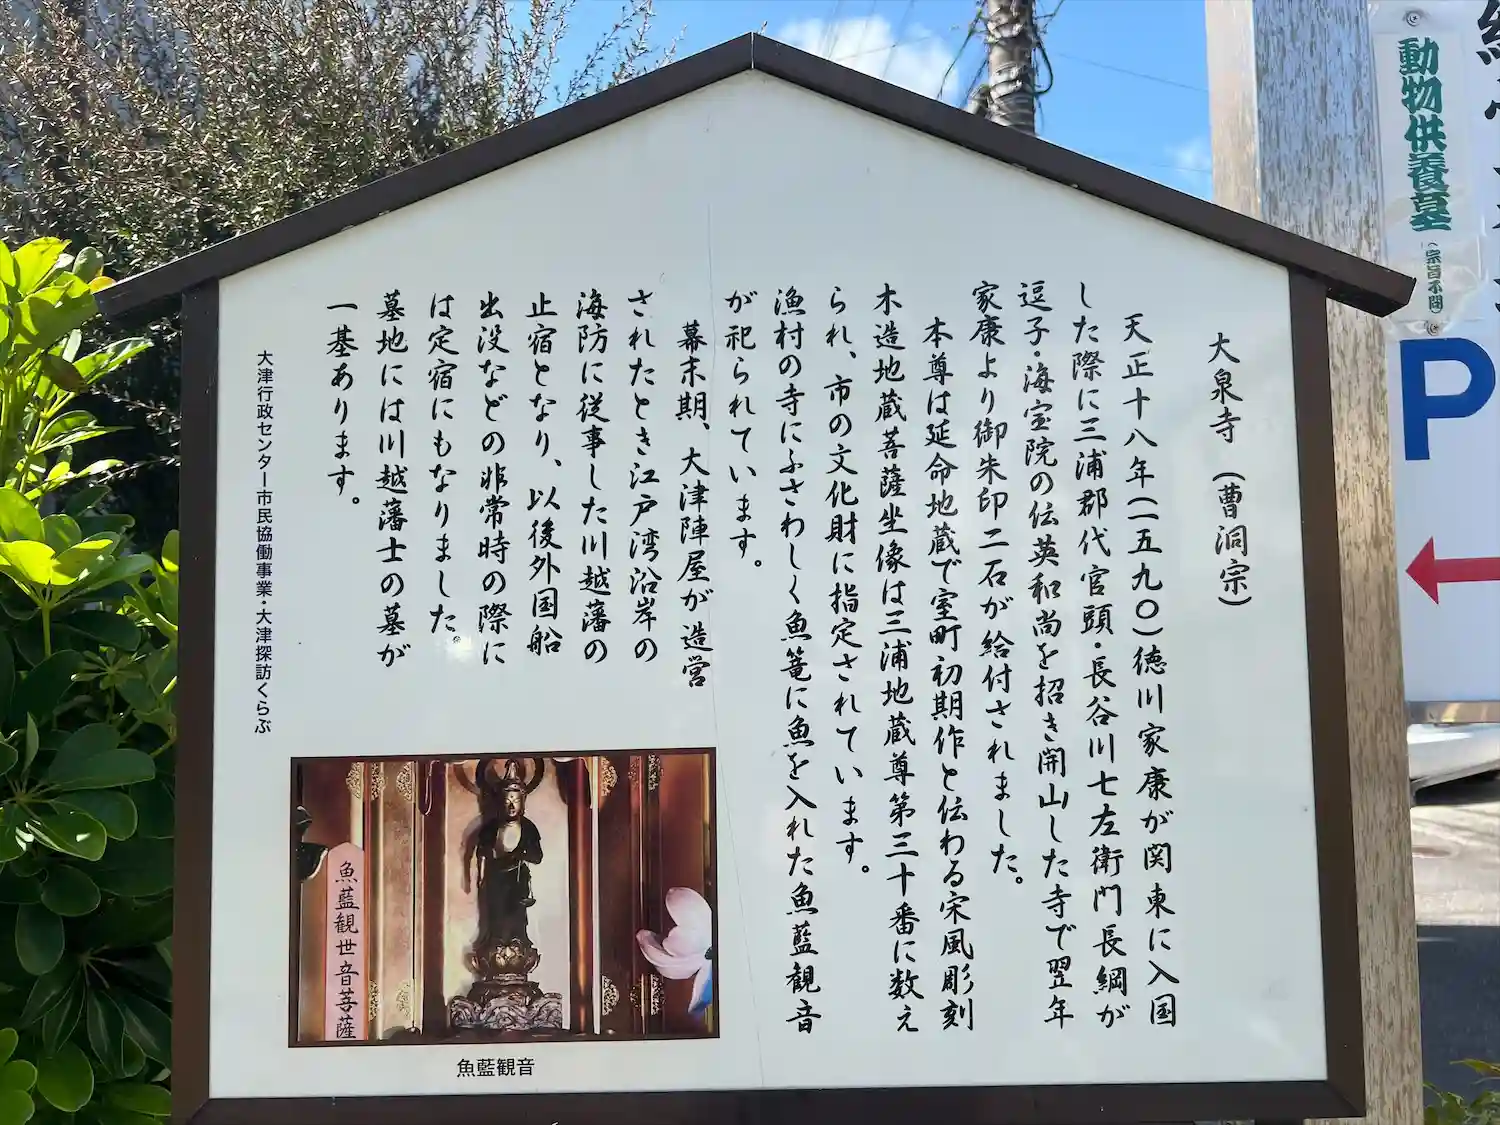 大泉寺（曹洞宗）
天正十八年(一五九〇)徳川家康が関東に入国
した際に三浦郡代官頭・長谷川七左衛門長綱が
逗子・海宝院の伝英和尚を招き開山した寺で翌年
家康より御朱印二石が給付されました。
本尊は延命地蔵で室町初期作と伝わる宋風彫刻
木造地蔵菩薩坐像は三浦地蔵尊第三十番に数え
られ、市の文化財に指定されています。
漁村の寺にふさわしく魚篭に魚を入れた魚藍観音
が祀られています。
幕末期、大津陣屋が造営
されたとき江戸湾沿岸の
海防に従事した川越藩の
止宿となり、以後外国船
出没などの非常時の際に
は定宿にもなりました。
墓地には川越藩士の墓が
一基あります。
大津行政センター市民協働事業・大津探訪くらぶ
魚藍観世音菩薩
魚藍観音
動物供養墓
(宗旨不問)
P